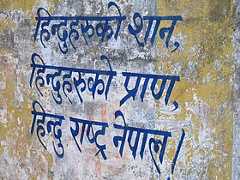 हिन्दुहरुको शान,
हिन्दुहरुको प्राण,
हिन्दु राष्ट्र नेपाल।